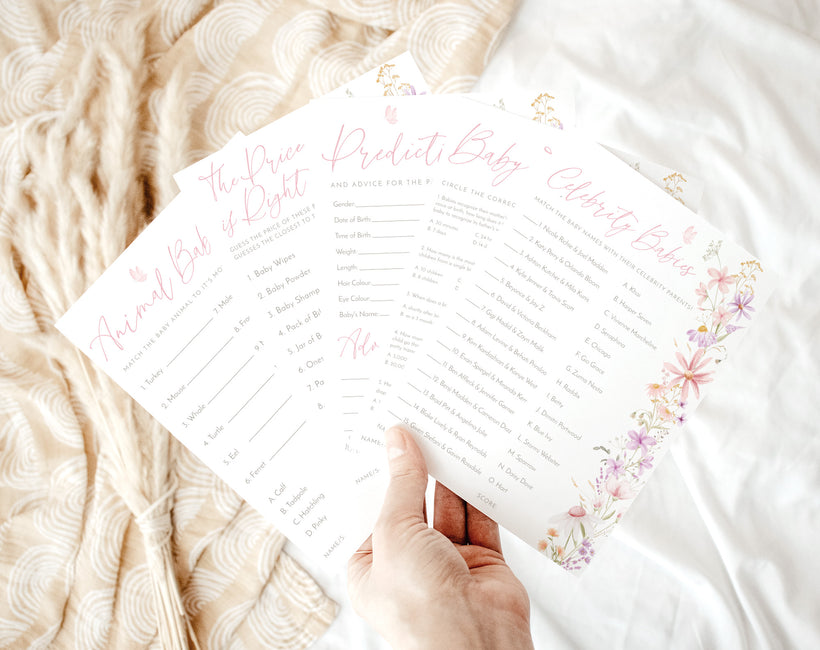 Animal Bab
MATCH THE BABY ANIMAL TO IT'S MO
1. Turkey
2. Mouse
3. Whale
4. Turtle
5. Eel
6. Ferret
7. Mole
8. Fer
9.
A. Calf
B. Tadpole
C. Hatchling
D. Pinky
NAME/S:
The Price
is Right
GUESS THE PRICE OF THESE
GUESSES THE CLOSEST TO
1. Baby Wipes
2. Baby Powder
3. Baby Shamp
4. Pack of B
5. Jar of B
6. Ones
7. Pa
8.
NAME/S
Predicti
AND ADVICE FOR THE P
Gender
Date of Birth
Time of Birth
Weight
Length
Hair Colour
Eye Colour
Baby's Name:
Adv
NAME
Baby
CIRCLE THE CORREC
Celebrity Babies
MATCH THE BABY NAMES WITH THEIR CELEBRITY PARENTS!
1. Nicole Richie & Joel Madden
2. Katy Perry & Orlando Bloom
3. Ashton Kutcher & Mila Kunis
4. Kylie Jenner & Travis Scott
5. Beyonce & Jay Z
6. David & Victoria Beckham
7. Gigi Hadid & Zayn Malik
8. Adam Levine & Behati Prinsloo
9. Kim Kardashian & Kanye West
10. Evan Spiegel & Miranda Kerr
11. Ben Affleck & Jennifer Garner
12. Benji Madden & Cameron Diaz
13. Brad Pitt & Angelina Jolie
14. Blake Lively & Ryan Reynolds
15. Gwen Stefani & Gavin Rossdale
A. Khai
B. Harper Seven
C. Vivienne Marcheline
D. Seraphina
E. Chicago
F. Gio Grace
G. Zuma Nesta
H. Raddix
I. Betty
J. Dimitri Portwood
K. Blue Ivy
L. Stormi Webster
M. Sparrow
N. Daisy Dove
O. Hart
SCORE